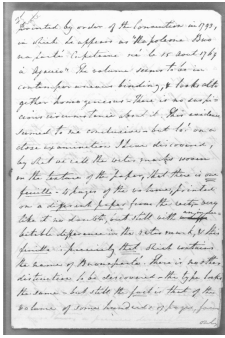 Printed by order of the Convention in 1793,
in which he appears as "Napoleone Buo-
naparte Capitaine né le 15 aout 1769
à Ajaccio" The volume seems to be in
contemporaneous binding, & looks alto-
gether homogeneous - There is no suspi-
cious circumstance about it. This evidence
seemed to me conclusive - but lo! on a
close examination I have discovered,
by what we call the water marks woven
in the texture of the paper, that there is one
feuille - 4 pages of the volume, printed
on a different paper from the rest - very
like it no doubt, but still with
difference in the water mark, & this
feuille - precisely that which contains
the name of Buonaparte. There is no other
distinction to be discovered - the type looks
the same - but still the fact is that of the
volume of some hundreds of pages, four
only